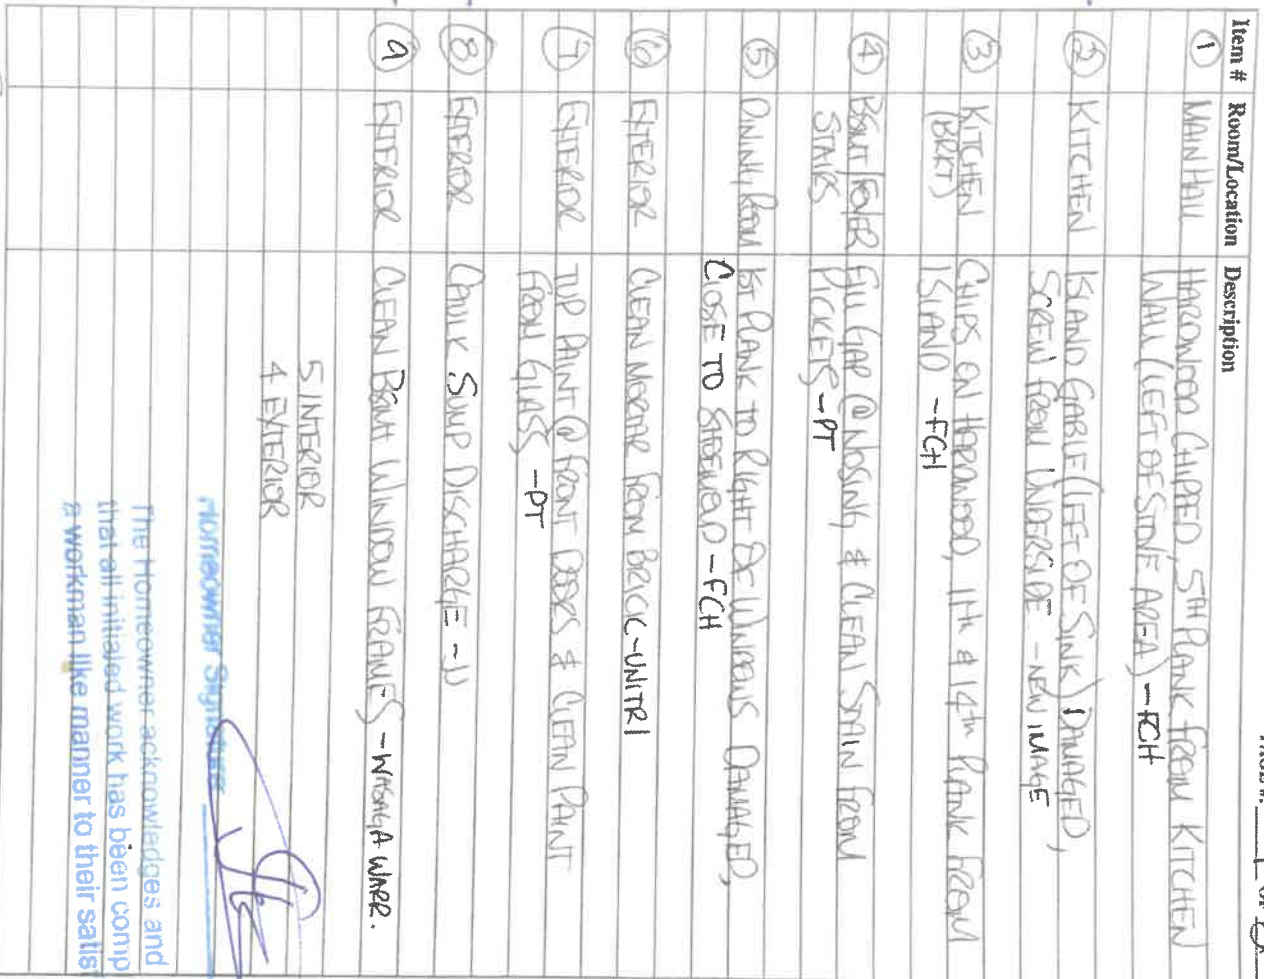 PAGE #: 1 OF
Item # Room/Location Description
1 MAIN HALL HARDWOOD CHIPPED, 5TH PLANK FROM KITCHEN
WALL (LEFT OF STOVE AREA) -FCH
2 KITCHEN ISLAND GABLE (LEFT OF SINK) DAMAGED,
SCREW FROM UNDERSIDE - NEW IMAGE
3 KITCHEN CHIPS ON HARDWOOD, 11th & 14th PLANK FROM
(BRKT) ISLAND -FCH
4 BSMT/FOYER FILL GAP @ NOSING & CLEAN STAIN FROM
STAIRS PICKETS -PT
5 DINING ROOM 1ST PLANK TO RIGHT OF WINDOWS DAMAGED,
CLOSE TO -FCH
6 EXTERIOR CLEAN MORTAR FROM BRICK-UNITRI
7 EXTERIOR T/UP PAINT @ FRONT DOORS & CLEAN PAINT
FROM GLASS -PT
8 EXTERIOR CAULK SUMP DISCHARGE -JJ
9 EXTERIOR CLEAN BSMT WINDOW FRAMES -WASAGA WARR.
5 INTERIOR
4 EXTERIOR
Homeowner Signature
The Homeowner acknowledges and
that all initialed work has been comp
a workman like manner to their satis